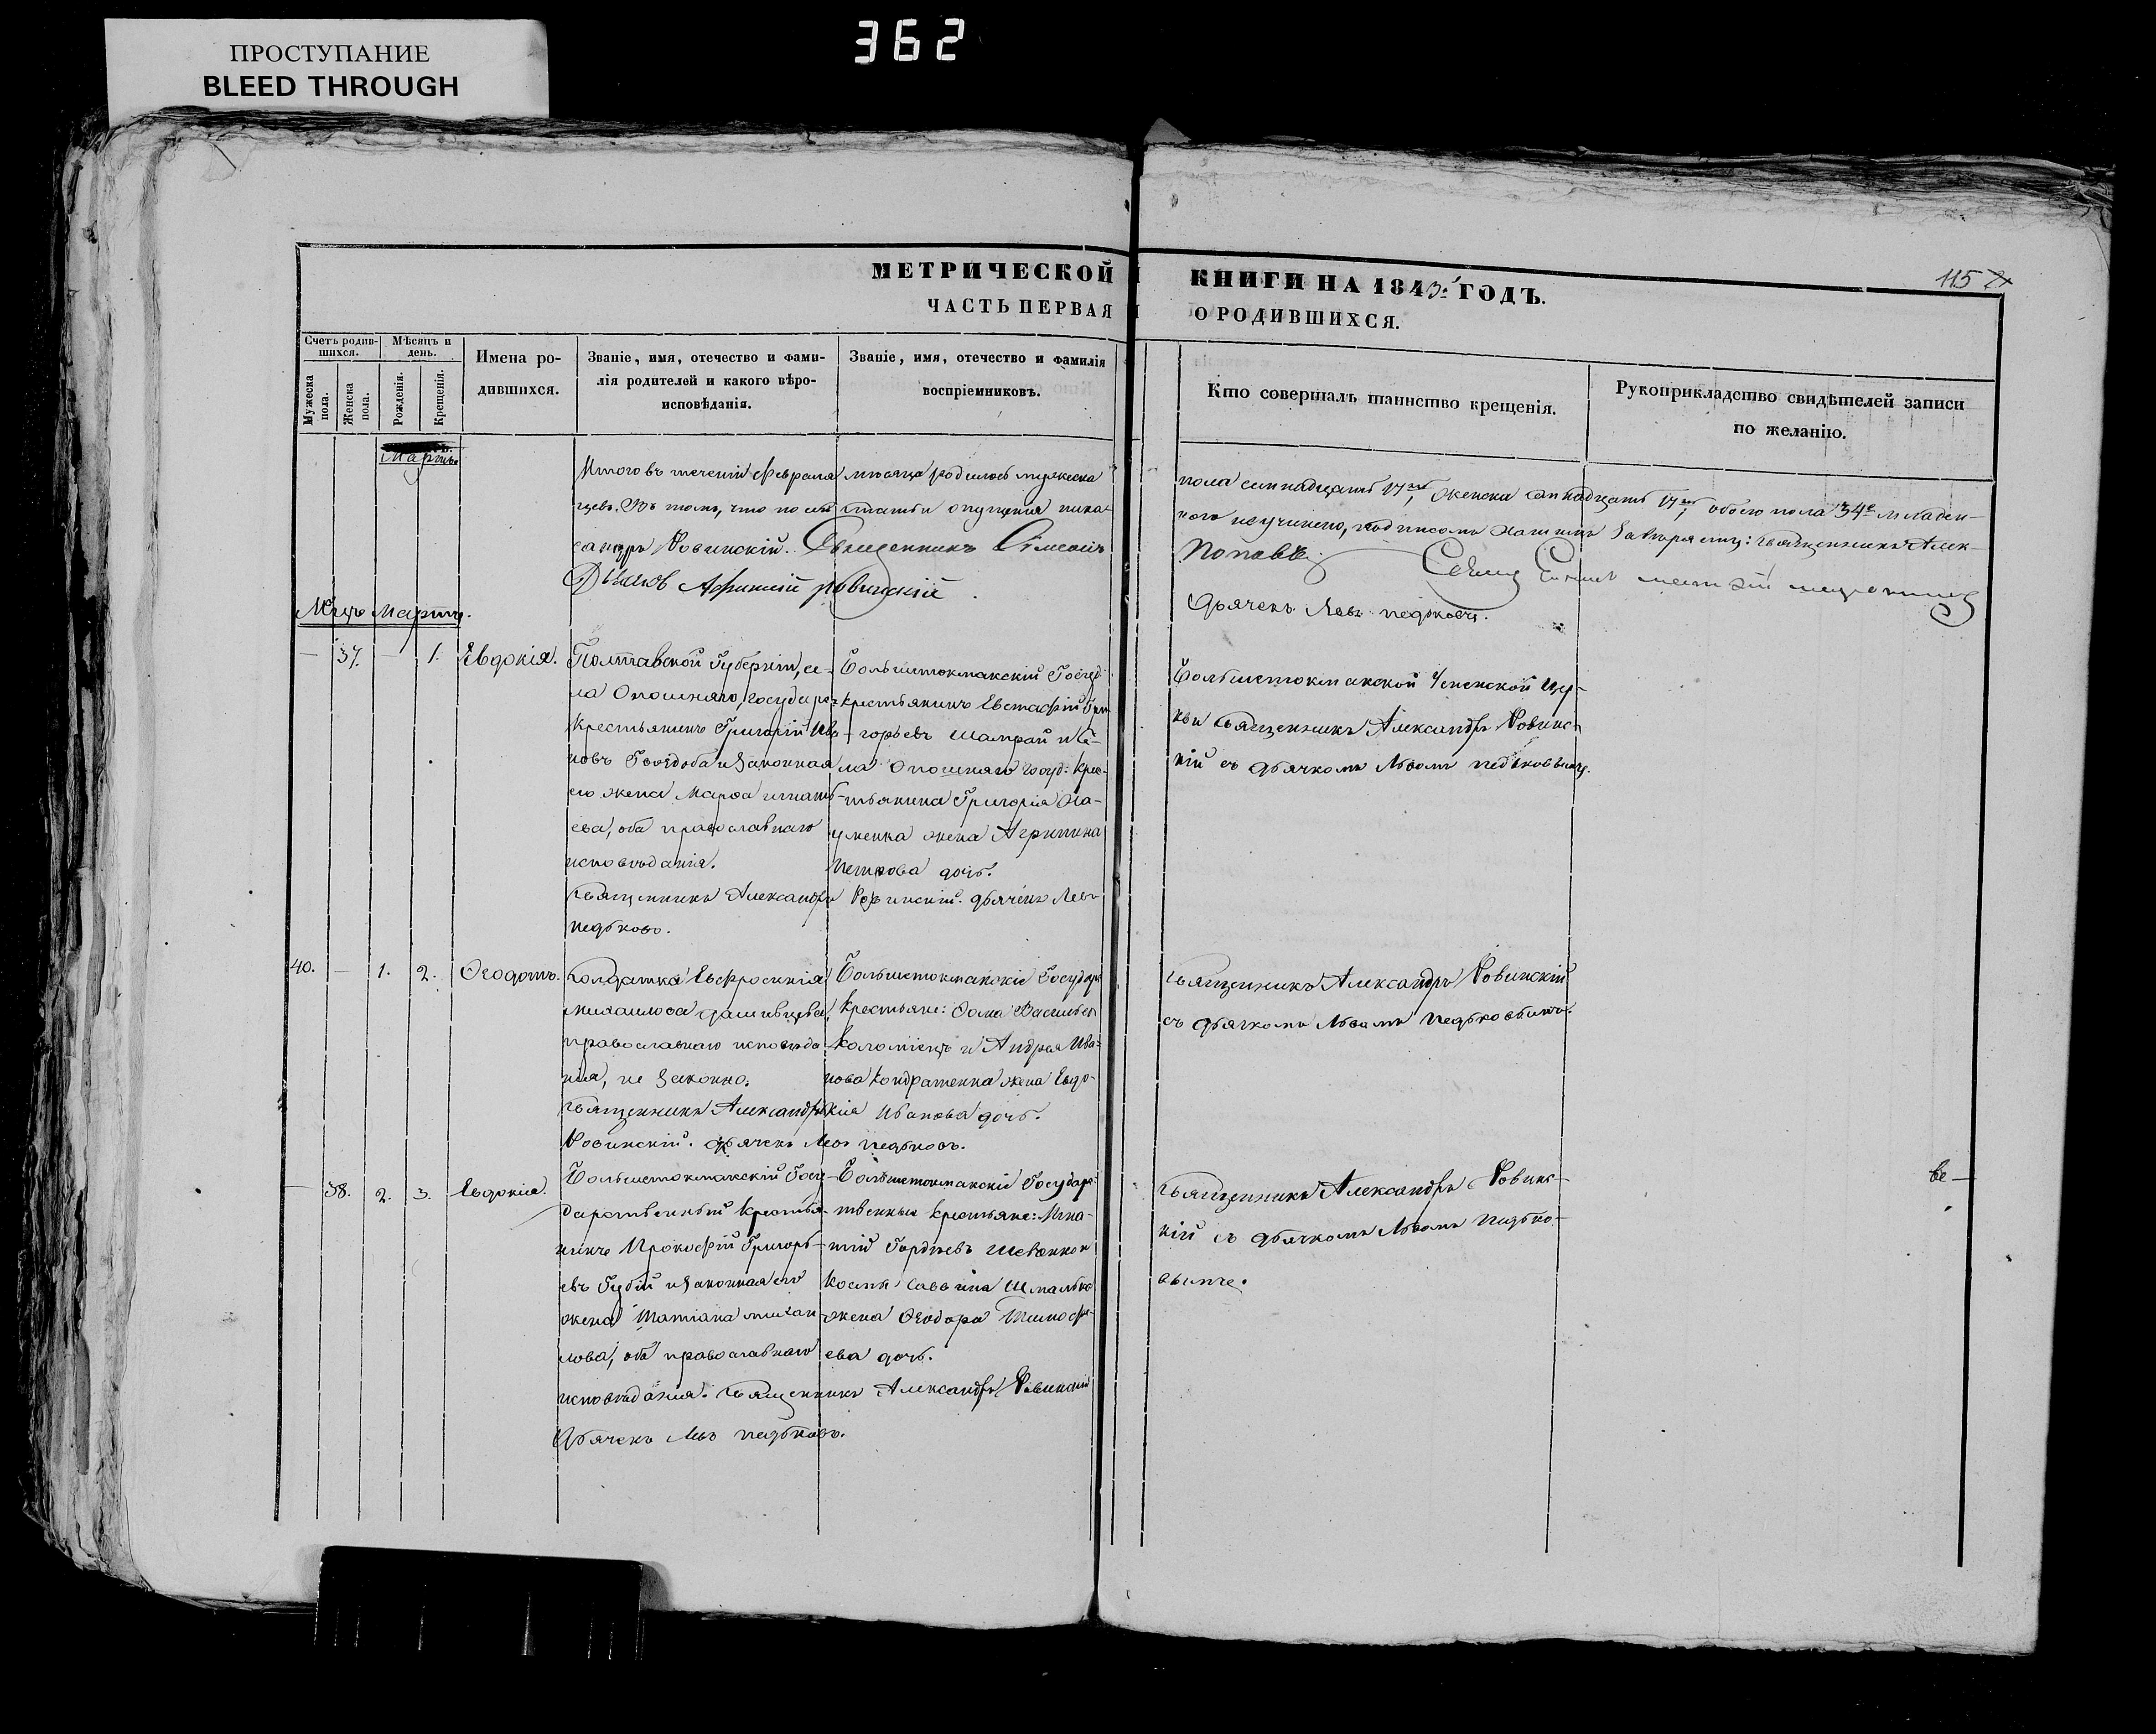 ПРОСТУПАНИЕ
BLEED THROUGH
362
115
МЕТРИЧЕСКОЙ КНИГИ НА 1843: ГОДЪ.
ЧАСТЬ ПЕРВАЯ О РОДИВШИХСЯ.
Счетъ родив-
шихся.
Мужеска
пола.
Женска
пола.
Мѣсяцъ и
день.
Рожденія.
Крещенія.
Имена ро-
дившихся.
Званіе, имя, отечество и фами-
лія родителей и какого вѣро-
исповѣданія.
Званіе, имя, отечество и фамилія
воспріемниковъ.
Кто совершалъ таинство крещенія.
Рукоприкладство свидѣтелей записи
по желанію.
Мартъ
Итого въ теченіи Февраля мѣсяца родилось мужеска пола семнадцать 17, женска семнадцать 17, обоего пола 34 младен-
цевъ. Въ томъ, что по сей статьи опущенія ника-
кого не учинено, подписомъ нашимъ Священникъ Алек-
сандръ Ровинскій. Священникъ Симеонъ Поповъ.
Ровинскій
Дьячекъ Левъ Педьковъ.
Мсцъ Мартъ.
— 37. — 1. Евдокія.
Полтавской Губерніи, се-
ла Опошняго, государ:
крестьянинъ Григорій Ива-
новъ Гвоздоба и законная
его жена Марфа Игнать-
ева, оба православнаго
исповѣданія.
Священникъ Александръ Ровинскій. Дьячекъ Левъ
Педьковъ.
Большетокмакскій Госуд:
крестьянинъ Евстафій Гри-
горьевъ Шамрай и се-
ла Опошняго Госуд: крес-
тьянина Григорія На-
уменка жена Агрипина
Петрова дочь.
Большетокмакской Успенской Цер-
кви Священникъ Александръ Ровинс-
кій съ дьячкомъ Львомъ Педьковымъ.
40. — 1. 2. Ѳеодотъ.
Солдатка Евфросинія
Михаилова
православнаго исповѣда-
нія, не законно.
Священникъ Александръ
Ровинскій. Дьячекъ Левъ Педьковъ.
Большетокмакскіе Государ:
крестьяне: Ѳома Васильевъ
Коломіецъ и Андрея Ива-
нова Кондратенка жена Евдо-
кія Иванова дочь.
Священникъ Александръ Ровинскій
съ дьячкомъ Львомъ Педьковымъ.
— 38. 2. 3. Евдокія.
Большетокмакскій Госу-
дарственный крестья-
нинъ Прокофій Григорь-
евъ Губій и законная его
жена Татіана Михаи-
лова, оба православнаго
исповѣданія. Священникъ Александръ Ровинскій
Дьячекъ Левъ Педьковъ.
Большетокмакскіе Государ-
твенные крестьяне: Игна-
тій Гордѣевъ Шевченко и
жена Ѳеодора Тимофе-
ева дочь.
Священникъ Александръ Ровинс-
кій съ дьячкомъ Львомъ Педько-
вымъ.
ве—